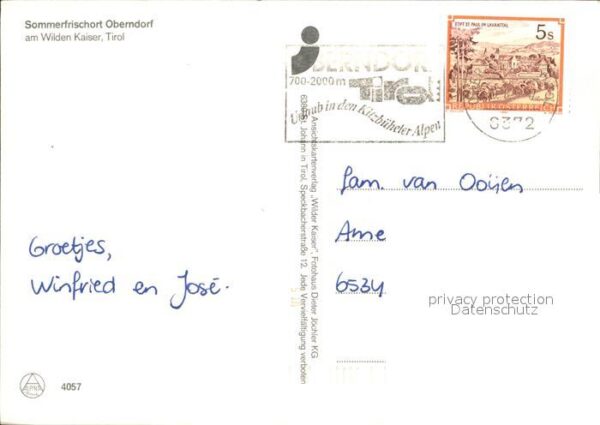 Sommerfrischort Oberndorf
am Wilden Kaiser, Tirol
Groetjes,
Winfried en José.
4057
Ansichtskartenverlag „Wilder Kaiser", Fotohaus Dieter Jöchler KG
Johann in Tirol, Speckbacherstraße 12. Jede Vervielfältigung verboten
OBERNDORF
700-2000m
Tirol
Urlaub in den Kitzbüheler Alpen
STIFT ST. PAUL IM LAVANTTAL
5s
REPUBLIK ÖSTERREICH
6372
fam. van Ooijen
6534
privacy protection
Datenschutz